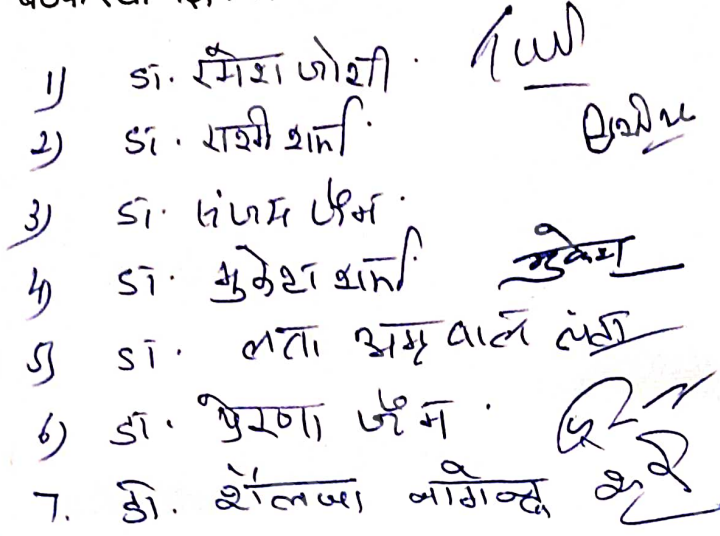 1) डॉ. रमेश जोशी
2) डॉ. राशी शर्मा
3) डॉ. संजय जैन
4) डॉ. मुकेश शर्मा मुकेश
5) डॉ. लता अग्रवाल लता
6) डॉ. प्रेरणा जैन
7. डॉ. शैलजा नागेन्द्र